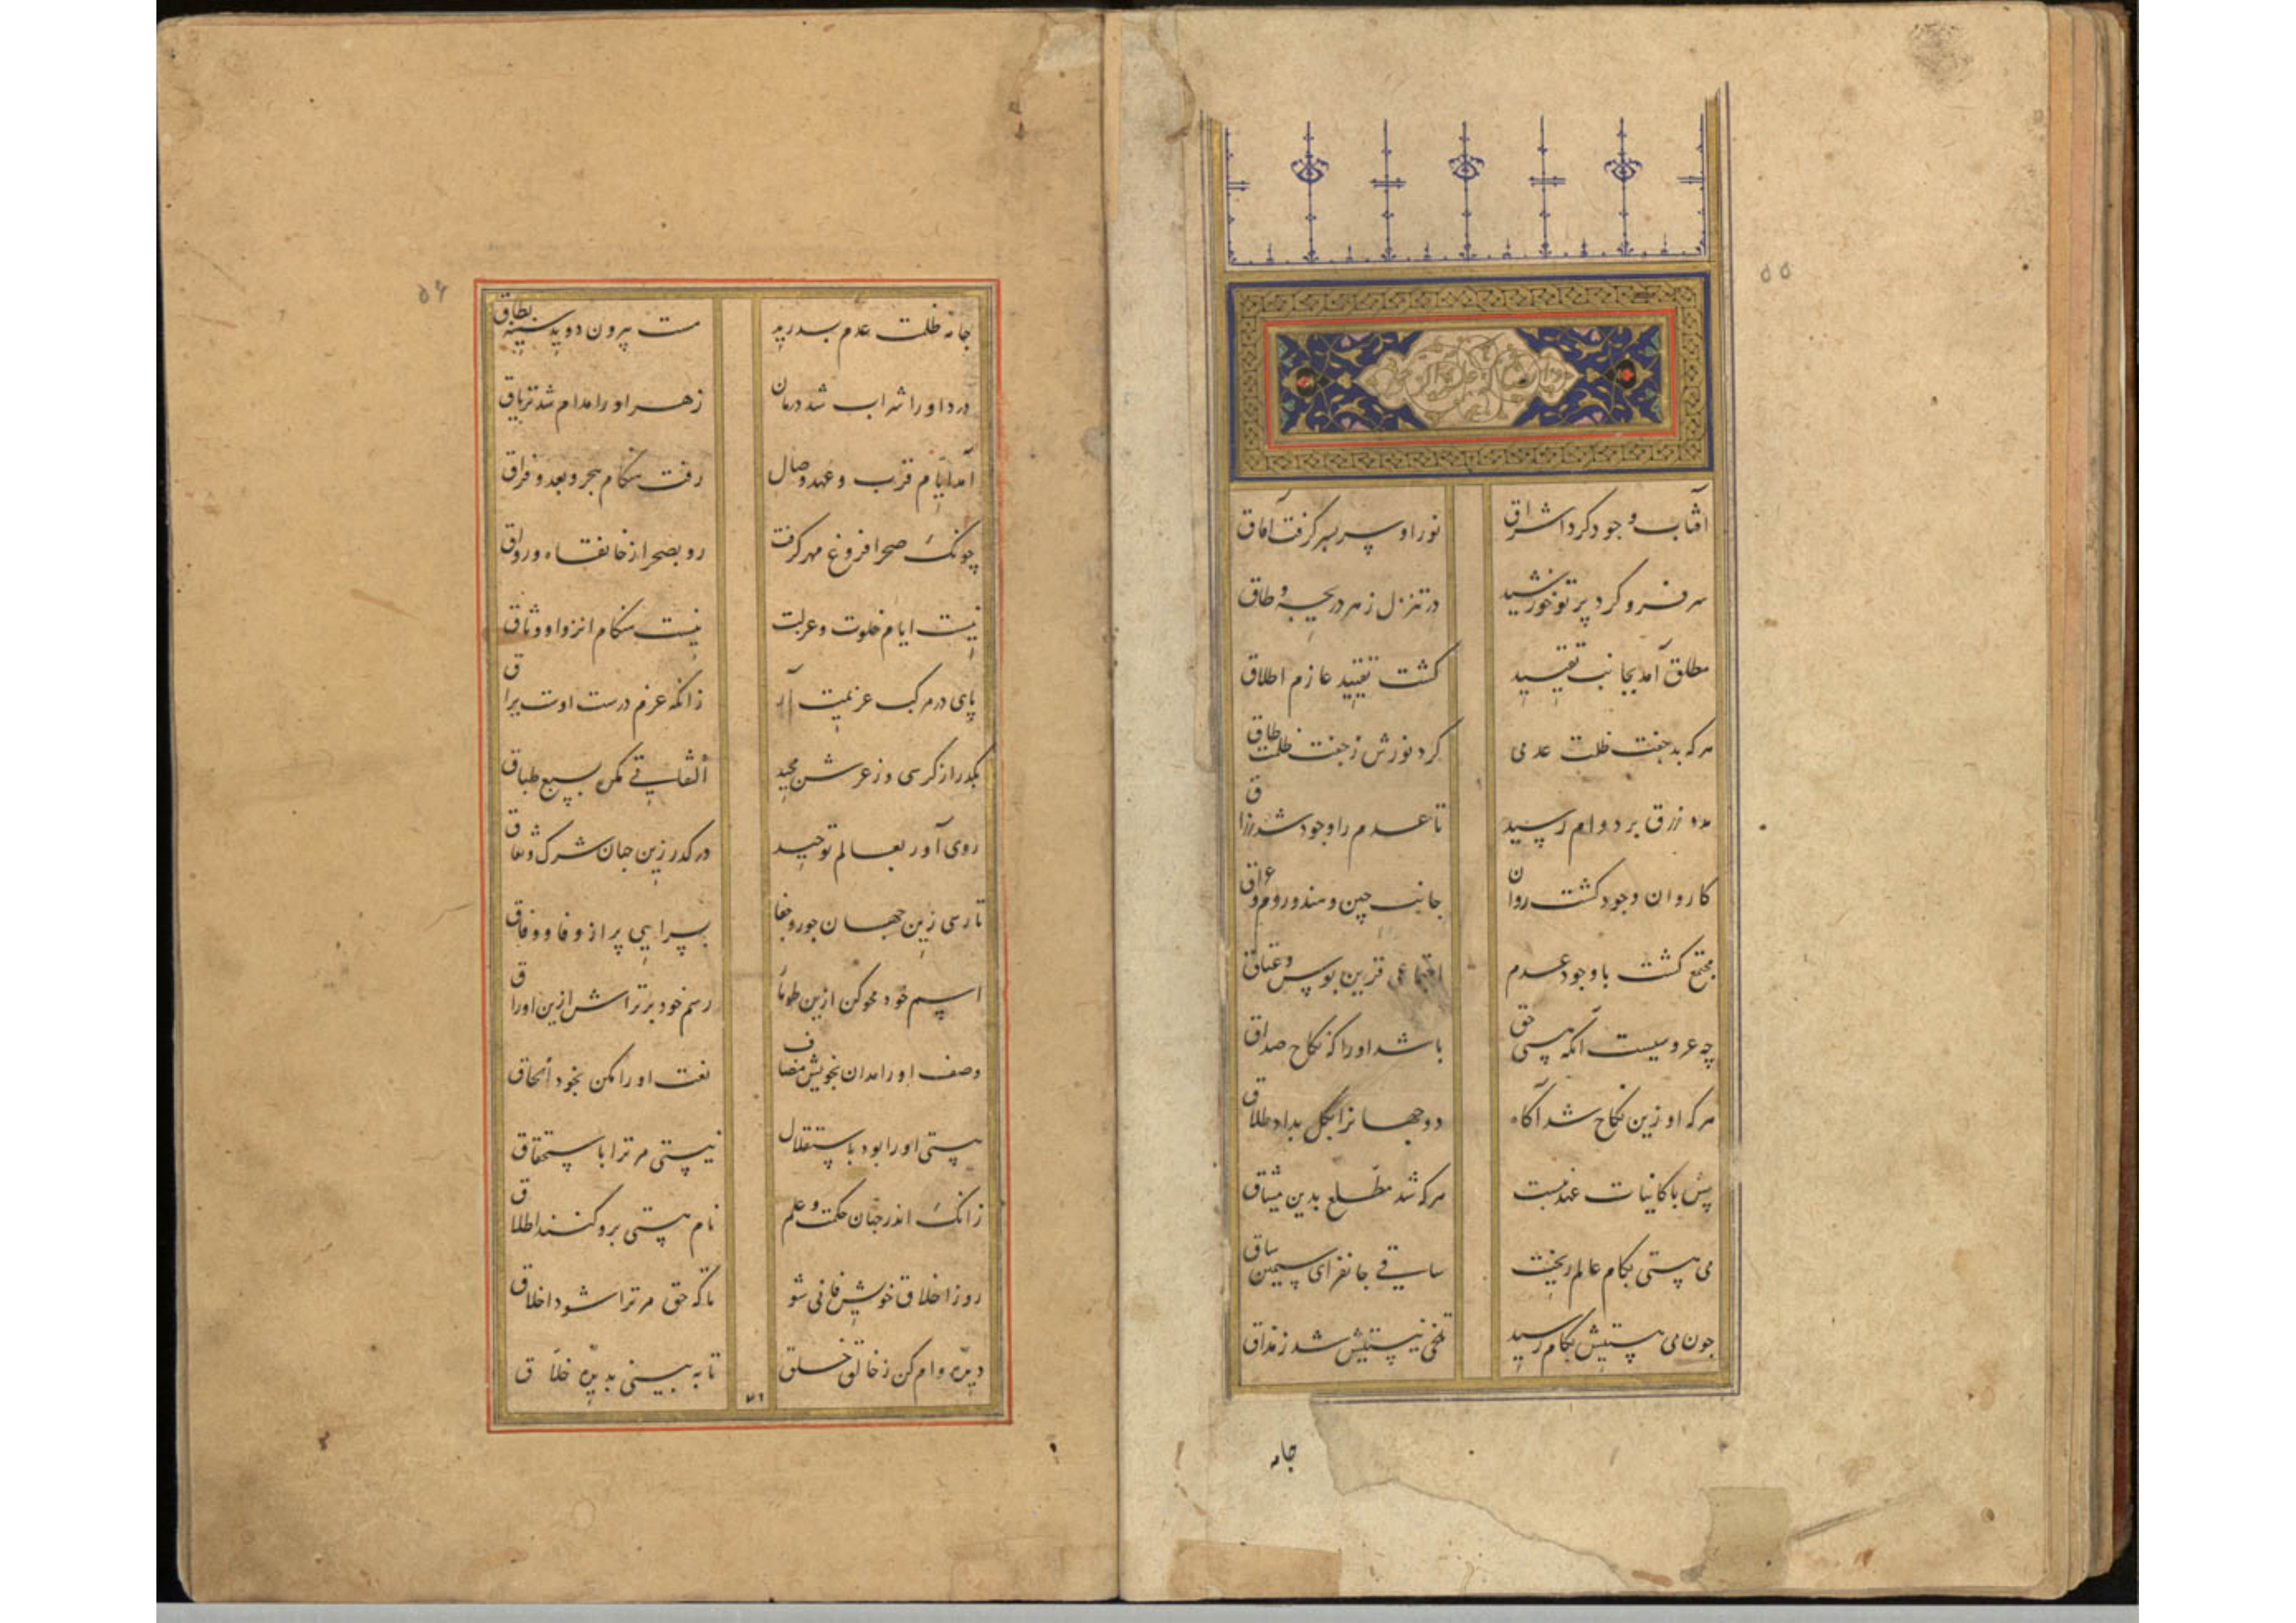 ۵۵
آفتاب وجود کرد اشراق نور او سر بسر گرفت آفاق
سر فرو کرد پرتو خورشید در تنزل ز هر دریچه و طاق
مطلق آمد بجانب تقیید گشت تقیید عازم اطلاق
هر که بد جفت ظلمت عدمی کرد نورش ز جفت ظلمت طاق
مدد رزق بر دوام رسید تا عدم را وجود شد رزاق
کاروان وجود گشت روان جانب چین و هند و روم و عراق
مجتمع گشت با وجود عدم اجتماعی قرین بوس و عناق
چه عروسیست آنکه هستی حق باشد او را که نکاح صداق
هر که او زین نکاح شد آگاه دو جهانرا بکل بداد طلاق
پس با کاینات عهد ببست هر که شد مطلع بدین میثاق
می هستی بکام عالم ریخت ساقی جانفزای سیمین ساق
چون می هستیش بکام رسید تلخی نیستیش شد ز مذاق
جامه
۵۶
جامه ظلمت عدم بدرید مست بیرون دوید بسته نطاق
درد او را شراب شد درمان زهر او را مدام شد تریاق
آمد ایام قرب و عهد وصال رفت هنگام هجر و بعد و فراق
چونک صحرا فروغ مهر گرفت رو بصحرا از خانقاه و رواق
نیست ایام خلوت و عزلت نیست هنگام انزوا و وثاق
پای در مرکب عزیمت آر زانکه عزم درست اوت براق
بگذر از کرسی و ز عرش مجید التفاتی مکن بسبع طباق
روی آور بعالم توحید در گذر زین جهان شرک و نفاق
تا رسی زین جهان جور و جفا بسرایی پر از وفا و وفاق
اسم خود محو کن ازین طومار رسم خود بر تراش ازین اوراق
وصف او را مدان بخویش مضاف نعت او را مکن بخود الحاق
هستی او را بود باستقلال نیستی مر ترا باستحقاق
زانک اندر جهان حکمت و علم نام هستی برو کنند اطلاق
رو ز اخلاق خویش فانی شو تا که حق مر ترا شود اخلاق
دیده وام کن ز خالق خلق تا به بینی بدیده خلاق